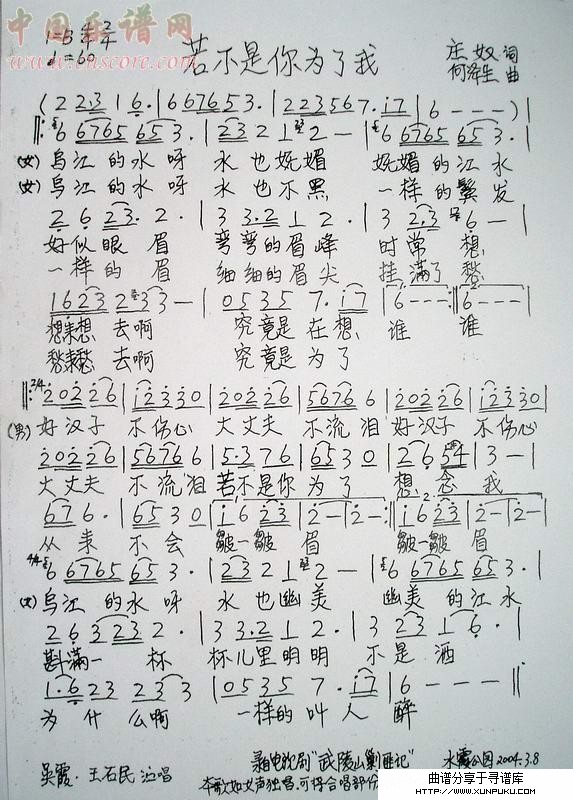 中国乐谱网
www.cnscore.com
1=B 4/4 2/4
♩=60
若不是你为了我
庄奴 词
何泽生 曲
(2 2·3 1 6· | 6 6765 3· | 2 23567 · i7 | 6 - - - ) |
6 6765 653· | 23 2 1 2 - | 6 6765 653· |
(女) 乌江的水呀 水也妩媚 妩媚的江水
(女) 乌江的水呀 水也不黑 一样的鬓发
2 6 23· 2· | 3 3·2 1 2· | 3 2·3 6 - |
好似眼眉 弯弯的眉峰 时常想
一样的眉 细细的眉尖 挂满了愁
1623 233 - | 0535 7· i7 | 6 - - - :|| 6 - - - |
想来想去啊 究竟是在想 谁 谁
愁来愁去啊 究竟是为了
2/4 202 26 | i2330 | 202 26 | 5676 6 | 202 26 | i2330 |
(男) 好汉子 不伤心 大丈夫 不流泪 好汉子 不伤心
202 26 | 5676 6 | 5·3 76 | 65 3 0 | 2 6 54 | 3 - |
大丈夫 不流泪 若不是你为了 想念我
67 6· | 65 3 0 | i6 23 | 2 - | 2 - :|| i6 23 | 2 - | 2 - |
从来不会 皱一皱眉 皱一皱眉
4/4 6 6765 65 3· | 23 2 1 2 - | 6 6765 65 3· |
(女) 乌江的水呀 水也幽美 幽美的江水
2 6 3 23 2· | 3 3·2 1 2· | 3 23 1 6· |
斟满一杯 杯儿里明明 不是酒
1·6 23 23 3 | 0535 7· i7 | 6 - - - ||
为什么啊 一样的叫人醉
吴霞·王石民 演唱
录自电视剧“武陵山剿匪记”
水霞公园 2004.3.8
本歌如女声独唱,可将合唱部份
曲谱分享于寻谱库
HTTPS://WWW.XUNPUKU.COM